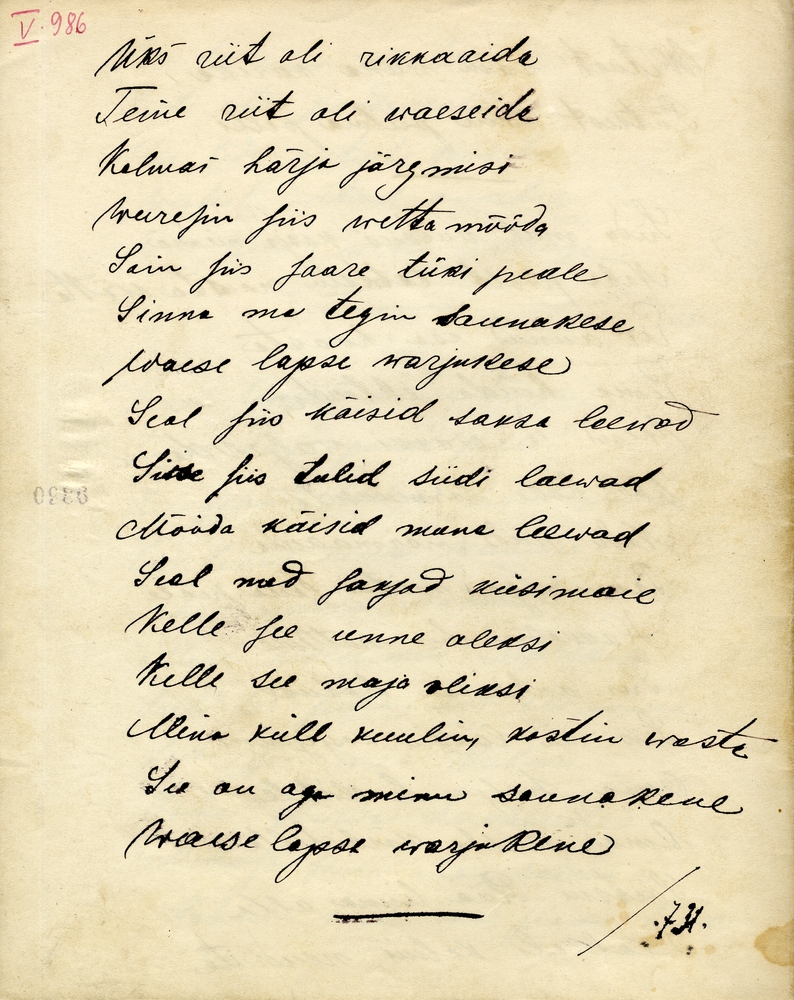 V. 986
Üks riit oli rikkaaida
Teine riit oli waeseida
Kolmas härja järgmisi
Weeresin siis wetta mööda
Sain siis saare tüki peale
Sinna ma tegin saunakese
Waese lapse warjukese
Seal siis käisid saksa leewad
Sisse siis tulid siidi laewad
Mööda käisid muna leewad
Seal nad saksad küsimaie
Kelle see unne oleksi
Kelle see maja oleksi
Mina küll kuulin, kostin wasta
See on aga minu saunakene
Waese lapse warjukene
9330